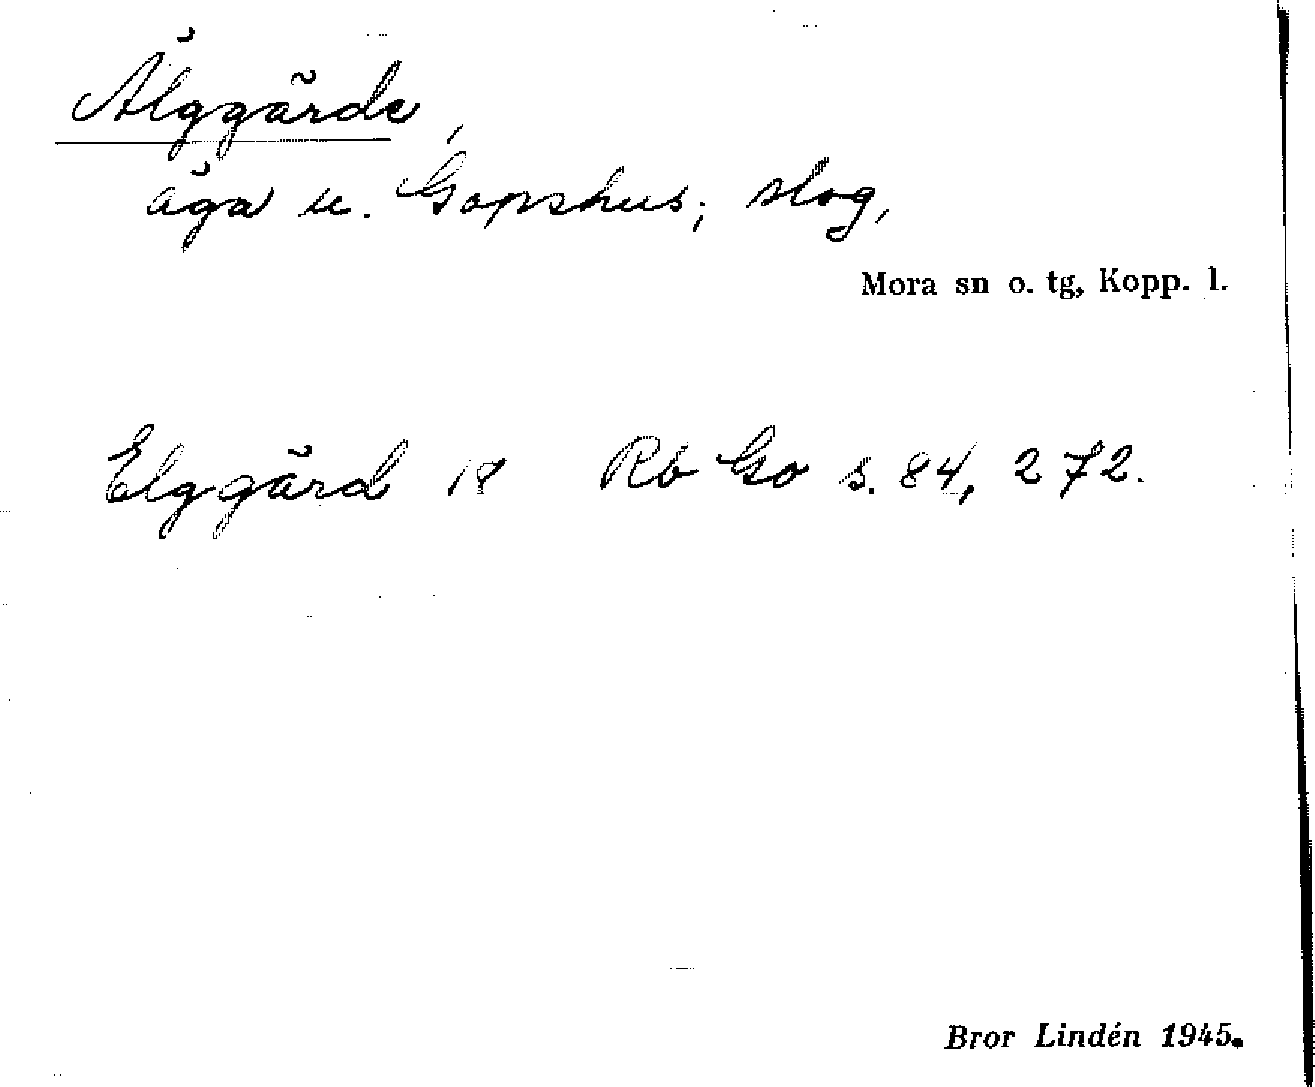 Älggärde,
äga u. Gopshus; slog,
Mora sn o. tg, Kopp. l.
Elggärd 18 Rb Go s. 84, 272.
Bror Lindén 1945.